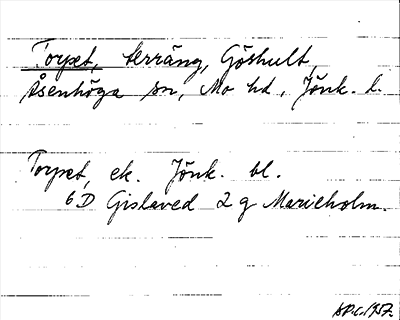 Torpet, terräng, Göshult,
Åsenhöga sn, Mo hd, Jönk. l.
Torpet, ek. Jönk. bl.
6D Gislaved 2 g Marieholm.